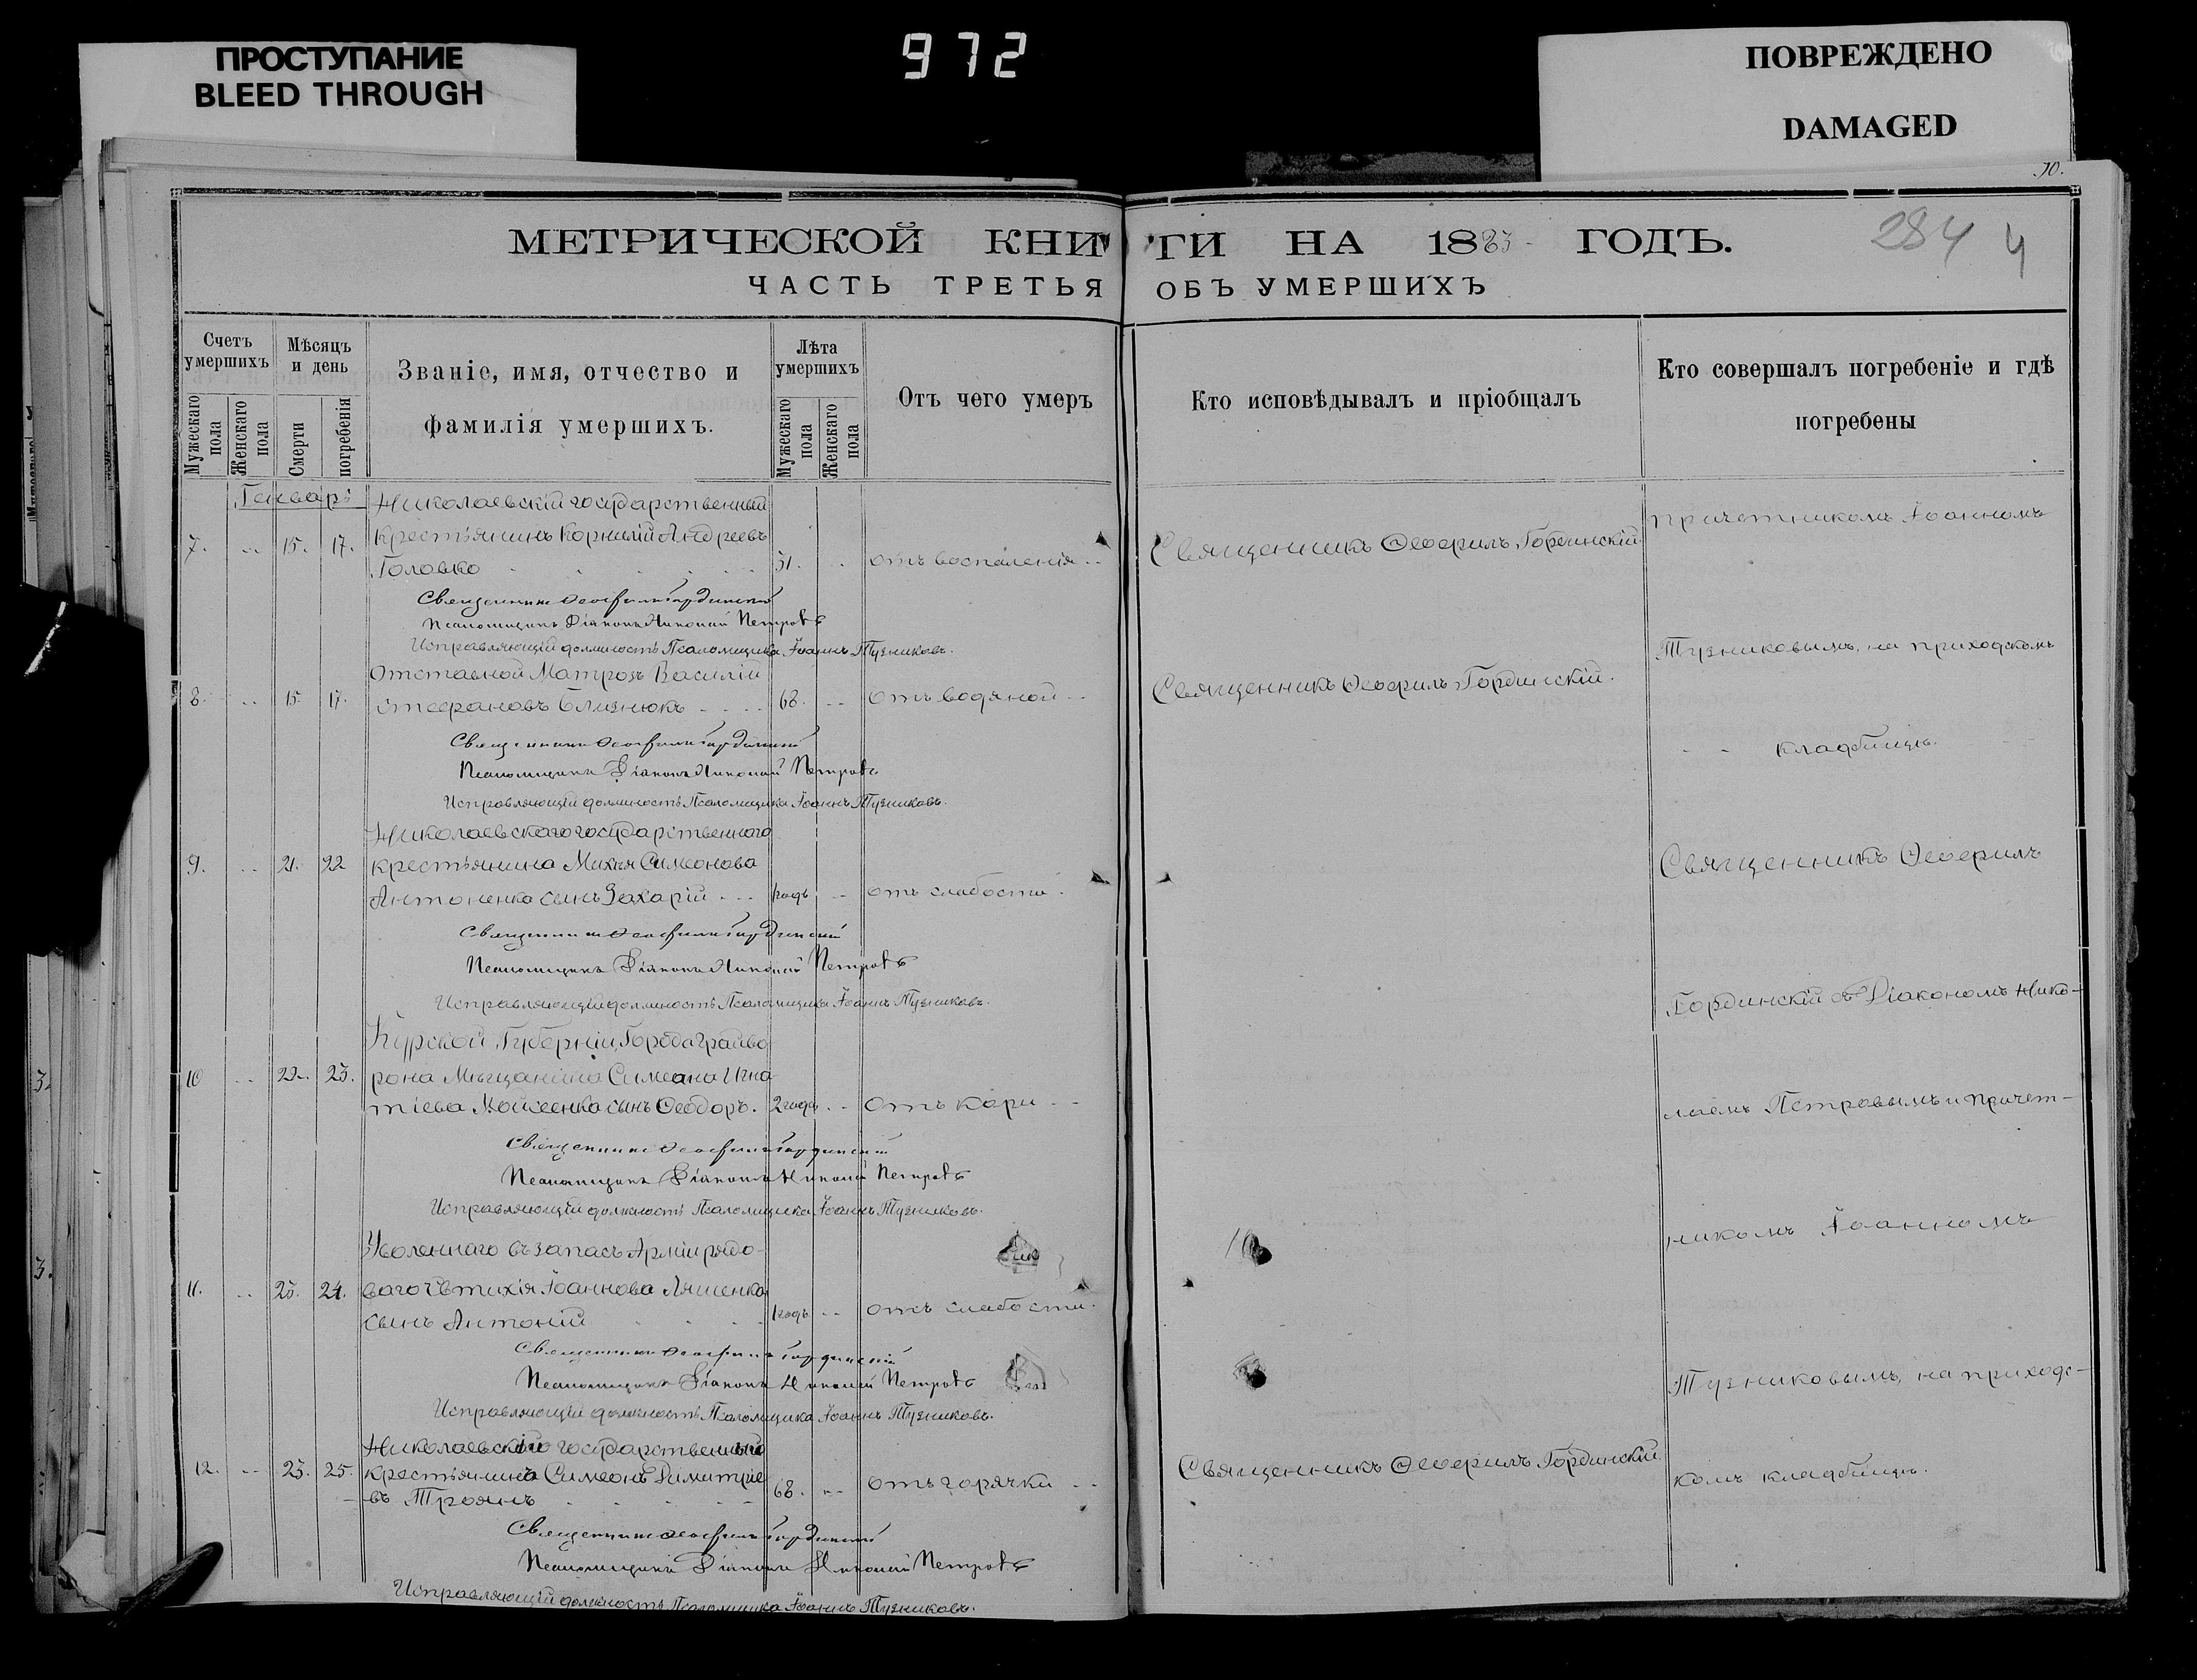 ПРОСТУПАНИЕ
BLEED THROUGH
972
ПОВРЕЖДЕНО
DAMAGED
МЕТРИЧЕСКОЙ КНИГИ НА 1883 ГОДЪ.
284 4
ЧАСТЬ ТРЕТЬЯ ОБЪ УМЕРШИХЪ
Счетъ умершихъ
Мужескаго пола
Женскаго пола
Мѣсяцъ и день
Смерти
погребенія
Званіе, имя, отчество и
фамилія умершихъ.
Лѣта умершихъ
Мужескаго пола
Женскаго пола
Отъ чего умеръ
Кто исповѣдывалъ и пріобщалъ
Кто совершалъ погребеніе и гдѣ
погребены
Николаевскій государственный
7. 15. 17. крестьянинъ Корнилій Андреевъ
Головко 51. отъ воспаленія Священникъ Ѳеофилъ Гординскій
причетникомъ Іоанномъ
Священникъ Ѳеофилъ Гординскій
Псаломщикъ Діаконъ Николай Петровъ
Исправляющій должность Псаломщика Іоаннъ Тузниковъ.
Тузниковымъ, на приходскомъ
Отставной Матрозъ Василій
8. 15. 17. Стефановъ Близнюкъ 68. отъ водяной Священникъ Ѳеофилъ Гординскій.
кладбищѣ.
Священникъ Ѳеофилъ Гординскій
Псаломщикъ Діаконъ Николай Петровъ
Исправляющій должность Псаломщика Іоаннъ Тузниковъ.
Николаевскаго государственнаго
9. 21. 22 крестьянина Михея Симеонова
Антоненка сынъ Захарій годъ отъ слабости
Священникъ Ѳеофилъ
Священникъ Ѳеофилъ Гординскій
Псаломщикъ Діаконъ Николай Петровъ
Исправляющій должность Псаломщика Іоаннъ Тузниковъ.
Гординскій съ Діакономъ Нико-
Курской Губерніи, Города Грайво
10 22. 23. рона Мѣщанина Симеона Игна
тіева Мойсеенка сынъ Ѳеодоръ. 2 года отъ кори
лаемъ Петровымъ и причет-
Священникъ Ѳеофилъ Гординскій
Псаломщикъ Діаконъ Николай Петровъ
Исправляющій должность Псаломщика Іоаннъ Тузниковъ.
никомъ Іоанномъ
Уволеннаго въ запасъ Арміи рядо-
11. 23. 24. ваго Евтихія Іоаннова Ляшенка
сынъ Антоній 1 годъ отъ слабости.
Священникъ Ѳеофилъ Гординскій
Псаломщикъ Діаконъ Николай Петровъ
Исправляющій должность Псаломщика Іоаннъ Тузниковъ.
Тузниковымъ, на приходс-
Николаевскій государственный
12. 23. 25. крестьянинъ Симеонъ Димитріе
въ Троянъ 68. отъ горячки Священникъ Ѳеофилъ Гординскій
комъ кладбищѣ.
Священникъ Ѳеофилъ Гординскій
Псаломщикъ Діаконъ Николай Петровъ
Исправляющій должность Псаломщика Іоаннъ Тузниковъ.